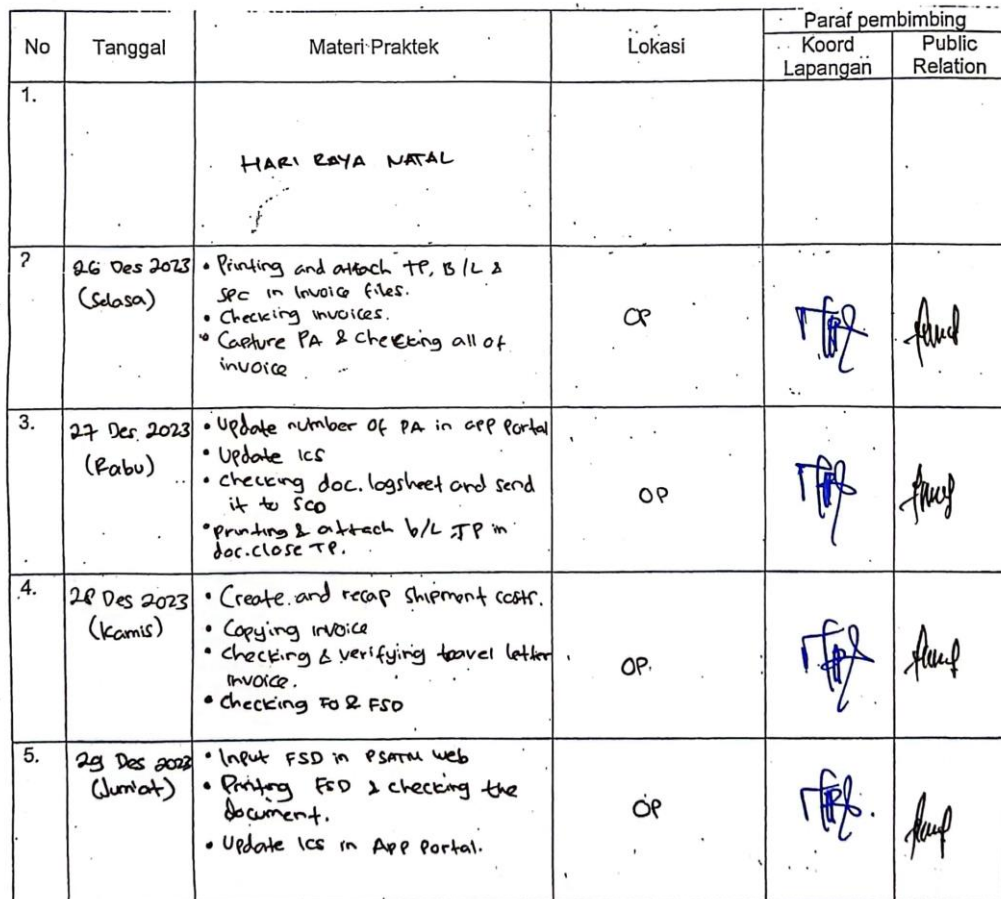 No Tanggal Materi Praktek Lokasi Paraf pembimbing
Koord Lapangan
Public Relation
1.
HARI RAYA NATAL
2
26 Des 2023
(Selasa)
• Printing and attach TP, B/L &
SPC in Invoice files.
• Checking invoices.
• Capture PA & checking all of
invoice
OP
3.
27 Des 2023
(Rabu)
• Update number of PA in app portal
• Update ICS
• checking doc. logsheet and send
it to SCO
• printing & attach b/L, TP in
doc. close TP.
OP
4.
28 Des 2023
(Kamis)
• Create and recap shipment costs.
• Copying invoice
• checking & verifying travel letter
invoice.
• Checking FO & FSD
OP.
5.
29 Des 2023
(Jum'at)
• Input FSD in PSATM web
• Printing FSD & checking the
document.
• Update ICS in App Portal.
OP